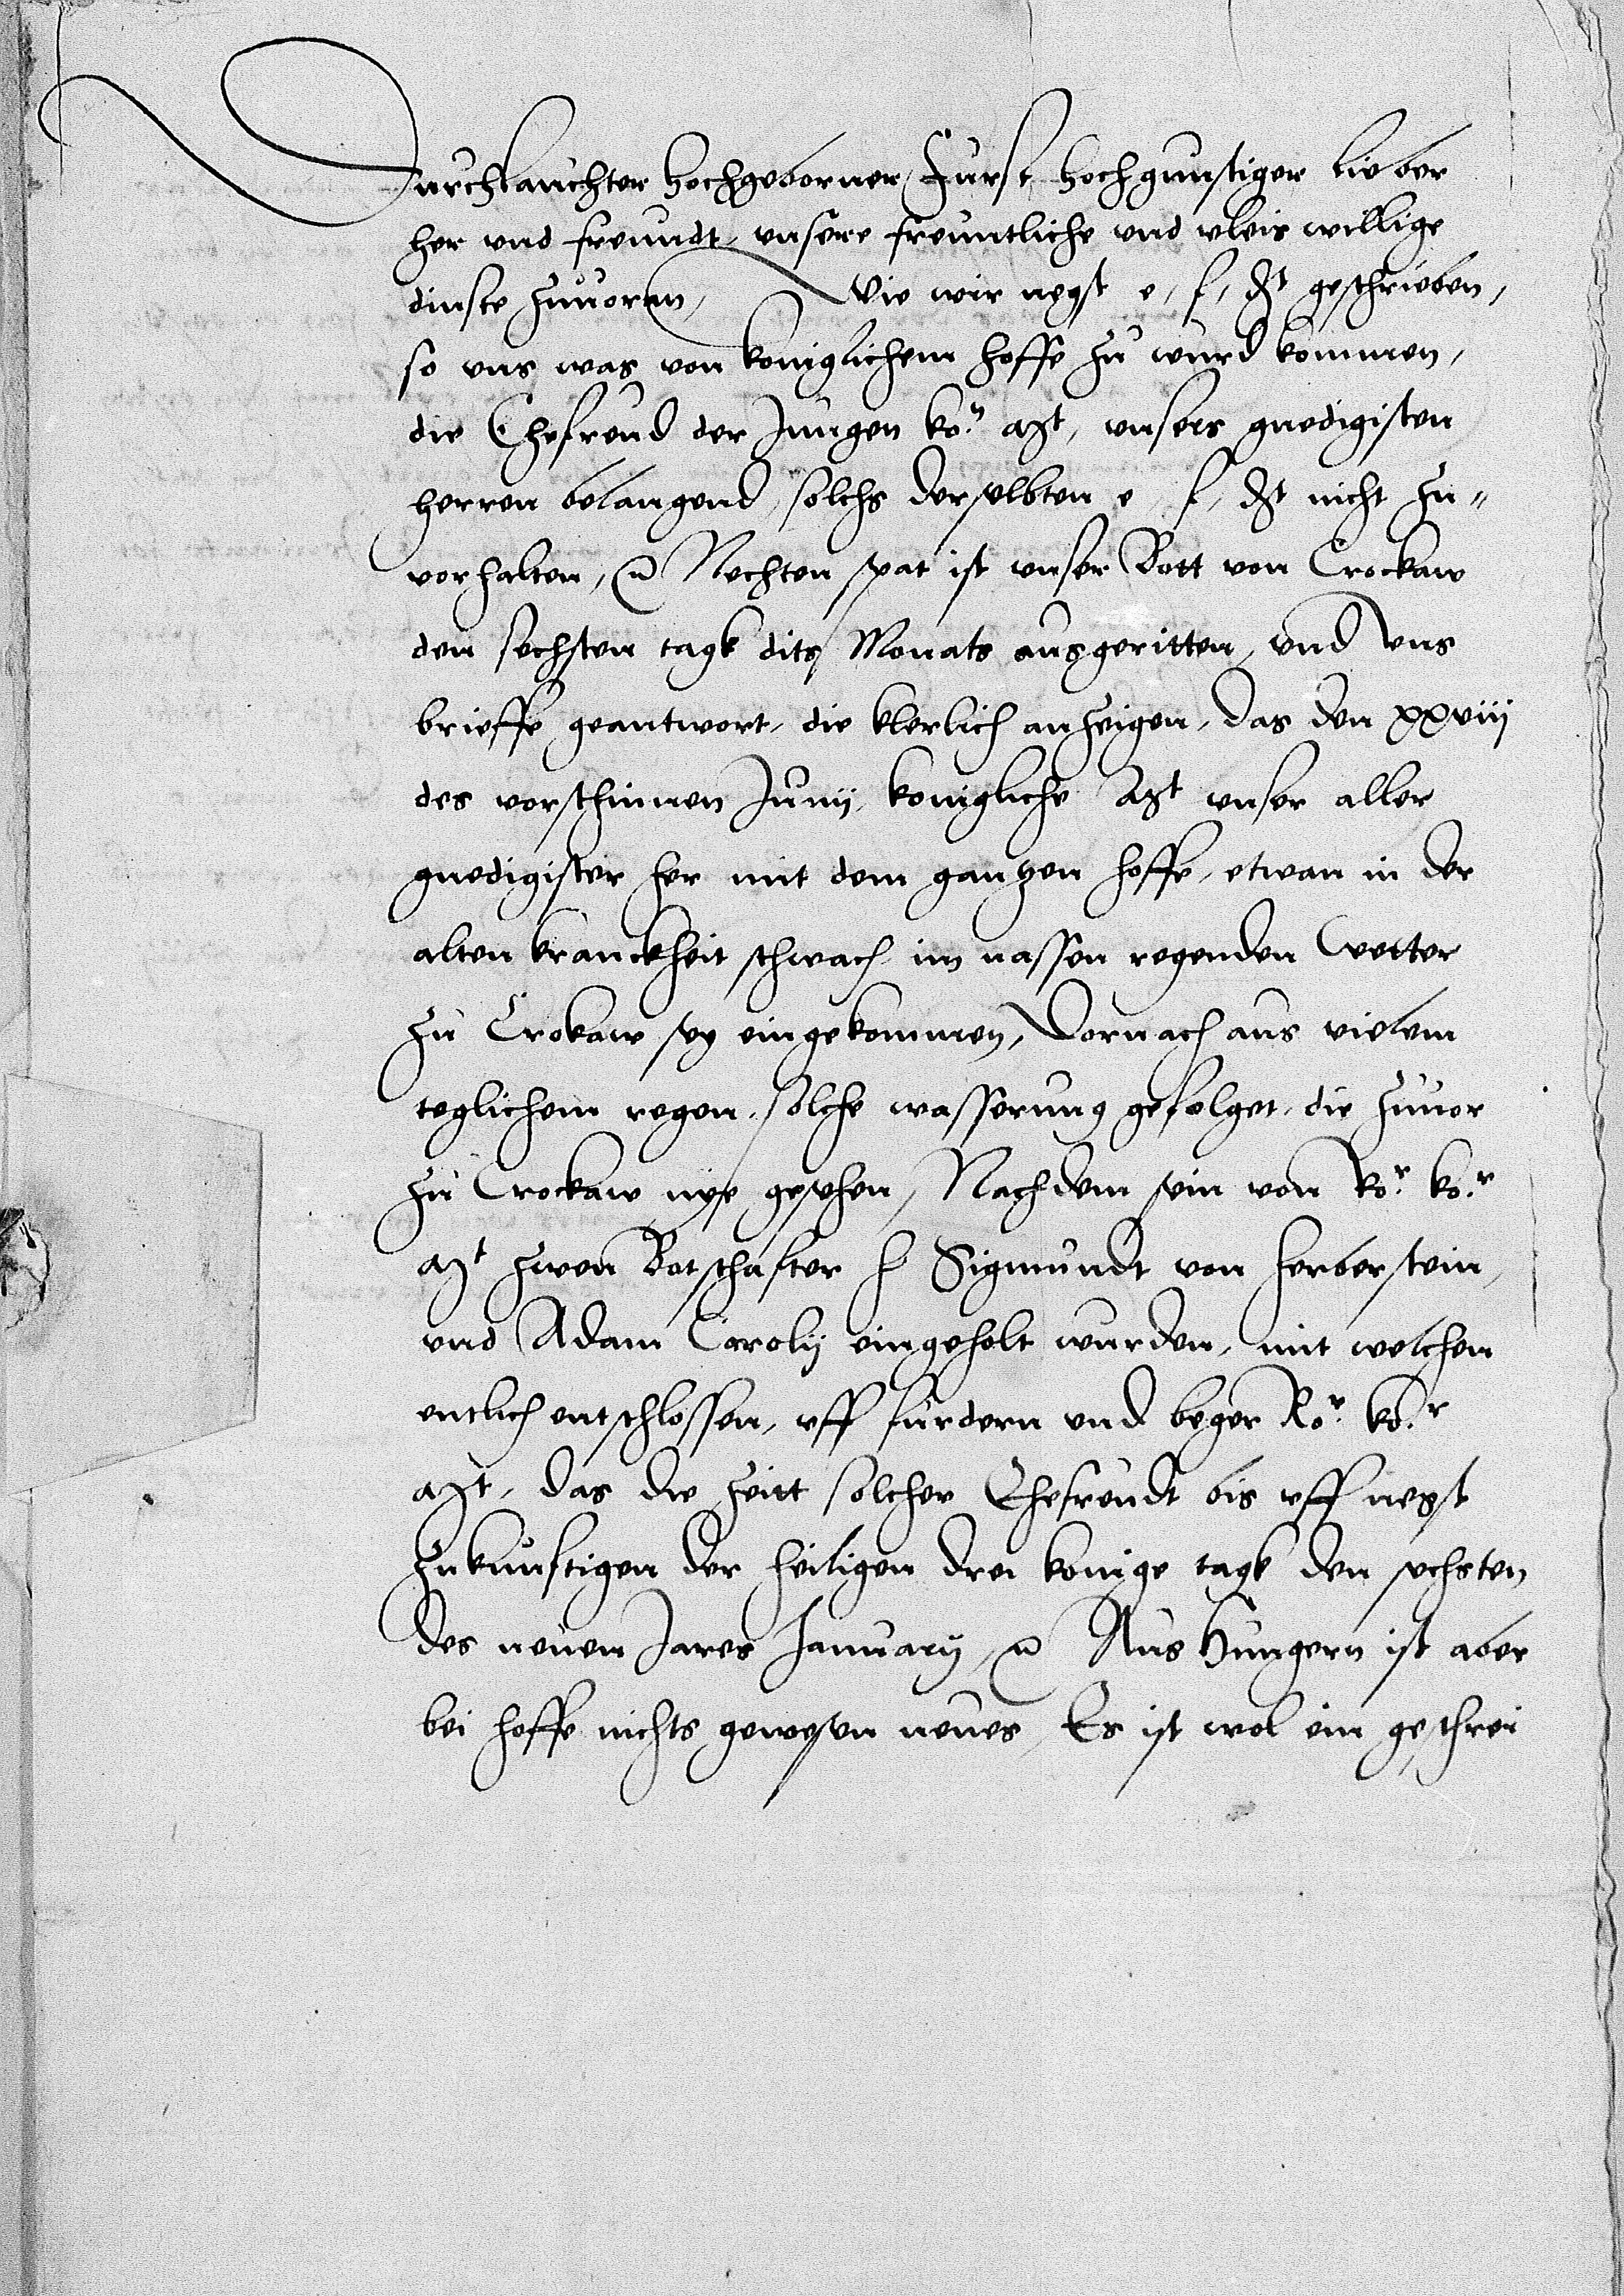 Durchlauchter hochgeborner Furst hochgunstiger lieber
her und freundt, unsere freuntliche und vleis willige
dinste zuuoran, Wie wir negst e, f, dt geschrieben,
so uns was von koniglichem hoffe zu wurd kommen,
die Ehefreud der Jungen ko:n mt, unsers gnedigisten
herren belangend, solchs derselbten e, f, dt nicht zu„
vorhalten, Nechten spat ist unser Bott von Crockaw
den sechsten tagk dits Monats ausgeritten, und uns
brieffe geantwort, die klerlich anzeigen, das den xxviij
des vorschinnen Junij, konigliche Mt unser aller
gnedigister her mit dem gantzen hoffe, etwan in der
alten kranckheit schwach im nassen regenden wetter
zu Crokaw sey eingekommen, Dornach aus vielem
teglichem regen, solche wasserung gefolget, die zuuor
zu Crockaw nye gesehen, Nachdem sein von Ro:r ko:r
mt zwen Botschafter h Sigmundt von herberstein,
und Adam Carolij eingeholt wurden, mit welchen
entlich entschlossen, uff furdern und beger Ro:r ko:r
mt, das die zeitt solcher Ehefreudt bis uff negst
zukunftigen der heiligen drei konige tagk den sechsten
des neuen Jares January, Aus Hungern ist aber
bei hoffe nichts gewesen neues, Es ist wol ein geschrei